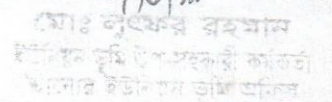 মোঃ লুৎফর রহমান
ইউনিয়ন ভূমি উপ-সহকারী কর্মকর্তা
ইউনিয়ন ভূমি অফিস